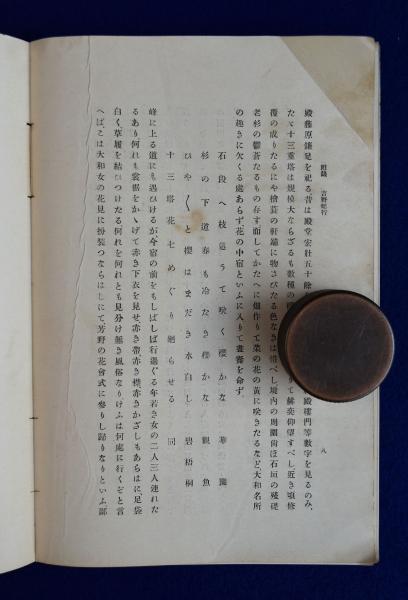 附録 吉野紀行
八
殿藤原鎌足を祀る、昔は殿堂宏壯五十餘 殿樓門等數字を見るのみ、
たゞ十三重塔は規模大ならざるも數種の りて鮮奕仰望すべし近き頃修
覆の成りたるにや檜葺の軒端に物さびたる色なきは惜べし境内の周圍尚ほ石垣の殘礎
老杉の鬱蒼たるもの存す而してかたへに畑作りて菜の花の黄に咲きたるなど、大和名所
の趣きに欠くる處あらず花の中宿といふに入りて晝餐を命ず、
石段へ枝這うて咲く櫻かな
杉の下道春も冷たき櫻かな 觀魚
ひや〱と櫻はまだき水白し 碧梧桐
十三塔花七めぐり廻らせる 同
峰に上る道にも遇ひけるが、今宿の前をもしばしば行過ぐる年若き女の二人三人連れた
るあり何れも裳裾をかゝげて赤き下衣を見せ赤き帶赤き襟赤きかざしもあらはに、足袋
白く、草履を結ひつけたる何れを何れとも見分け難き風俗なりけふは何處に行くぞと言
へば、こは大和女の花見に扮裝つならはしにて芳野の花會式に參りし歸りなりといふ、鄙